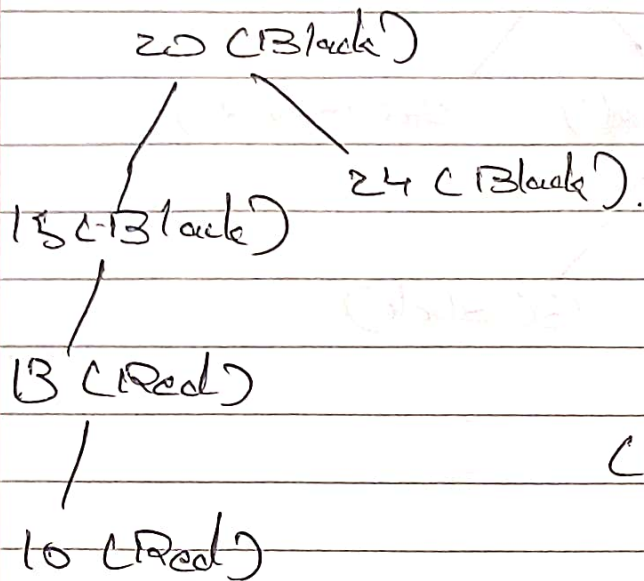 20 (Black)
24 (Black).
15 (Black)
13 (Red)
(
10 (Red)